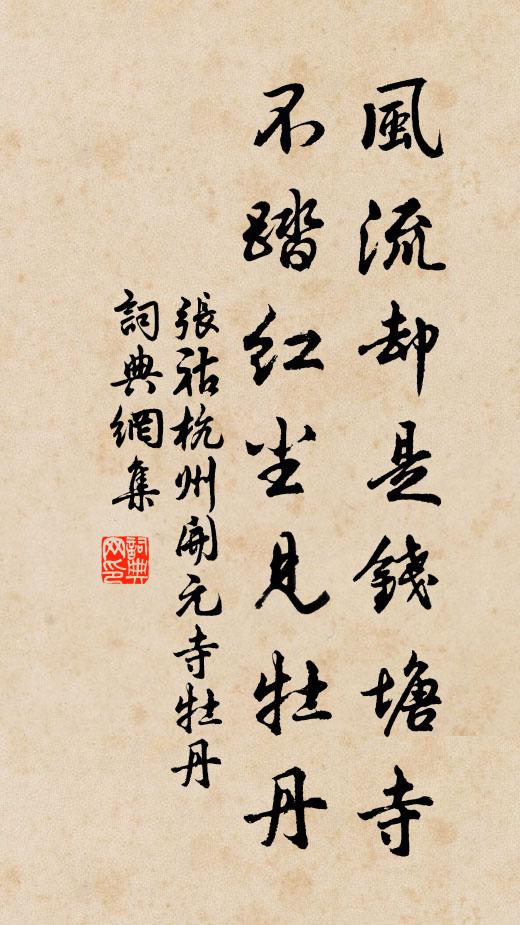 風流却是錢塘寺
不踏红尘見牡丹
張祜杭州開元寺牡丹
詞典網集
詞典网印